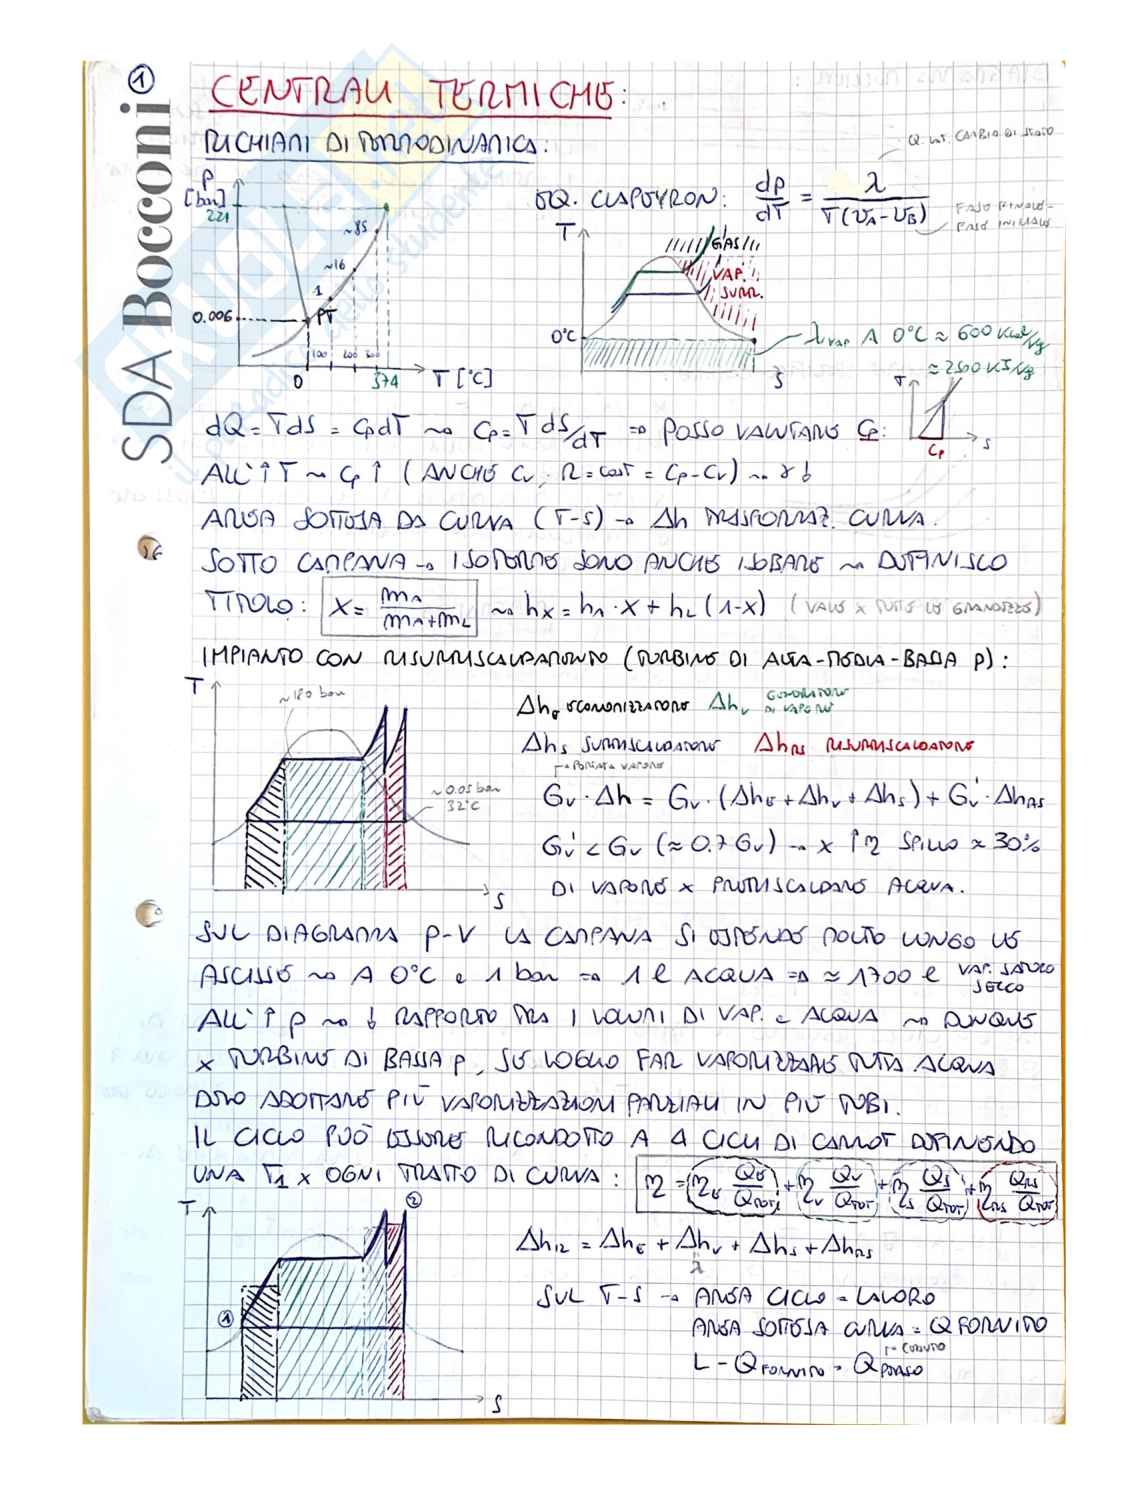 ①
SDA Bocconi
CENTRALI TERMICHE:
RICHIAMI DI TERMODINAMICA:
Q. LAT. CAMBIO DI STATO
P
[bar]
221
~85
~16
1
0.006
PT
100 200 300
0 374 T [°C]
EQ. CLAPEYRON: dp/dT = λ / T(υA - υB)
FASE FINALE-
FASE INIZIALE
T
GAS
VAP.
SURR.
0°C
S
λVAP A 0°C ≈ 600 Kcal/Kg
≈ 2500 KJ/Kg
T
S
CP
dQ = TdS = CpdT ⇝ Cp = T dS/dT ⇒ POSSO VALUTARE CP:
ALL'↑T ⇝ Cp ↑ (ANCHE Cv, R = cost = Cp - Cv) ⇝ γ↓
AREA SOTTESA DA CURVA (T-S) → Δh TRASFORMAZ. CURVA.
SOTTO CAMPANA → ISOTERME SONO ANCHE ISOBARE ⇝ DEFINISCO
TITOLO: X = mA / mA+mL ⇝ hX = hA · X + hL (1-X) (VALE X TUTTE LE GRANDEZZE)
IMPIANTO CON RISURRISCALDAMENTO (TURBINE DI ALTA-MEDIA-BASSA P):
T
~180 bar
~0.05 bar
32°C
S
ΔhE ECONOMIZZATORE ΔhV GENERATORE DI VAPORE
ΔhS SURRISCALDATORE ΔhRS RISURRISCALDATORE
→ PORTATA VAPORE
GV · Δh = GV · (ΔhE + ΔhV + ΔhS) + GV' · ΔhRS
GV' < GV (≈ 0.7 GV) → X ↑η SPILLO ≈ 30%
DI VAPORE X PRERISCALDARE ACQUA.
SUL DIAGRAMMA P-V LA CAMPANA SI ESTENDE MOLTO LUNGO LE
ASCISSE ⇝ A 0°C e 1 bar ⇒ 1 l ACQUA ⇒ ≈ 1700 l VAP. SATURO SECCO
ALL'↑ p ⇝ ↓ RAPPORTO TRA I VOLUMI DI VAP. e ACQUA ⇝ DUNQUE
X TURBINE DI BASSA P, SE VOGLIO FAR VAPORIZZARE TUTTA ACQUA
DEVO ADOTTARE PIÙ VAPORIZZAZIONI PARZIALI IN PIÙ TUBI.
IL CICLO PUÒ ESSERE RICONDOTTO A 4 CICLI DI CARNOT DEFINENDO
UNA T1 X OGNI TRATTO DI CURVA: η = ηE QE/QTOT + ηV QV/QTOT + ηS QS/QTOT + ηRS QRS/QTOT
T
②
①
S
Δh12 = ΔhE + ΔhV + ΔhS + ΔhRS
λ
SUL T-S → AREA CICLO = LAVORO
AREA SOTTESA CURVA = Q FORNITO
→ CEDUTO
L - QFORNITO = QPERSO